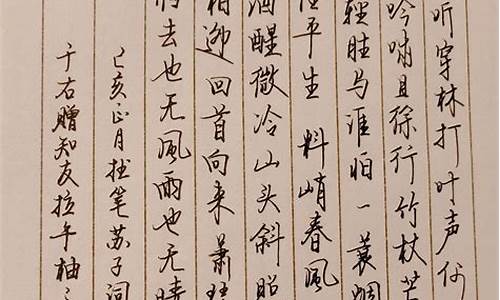 听穿林打叶声何
吟啸且徐行竹杖芒
轻胜马谁怕一蓑烟
任平生 料峭春风
酒醒微冷山头斜照
相迎回首向来萧瑟
归去也无风雨也无晴
己亥正月拙笔苏子词
于右赠知友拉午柚